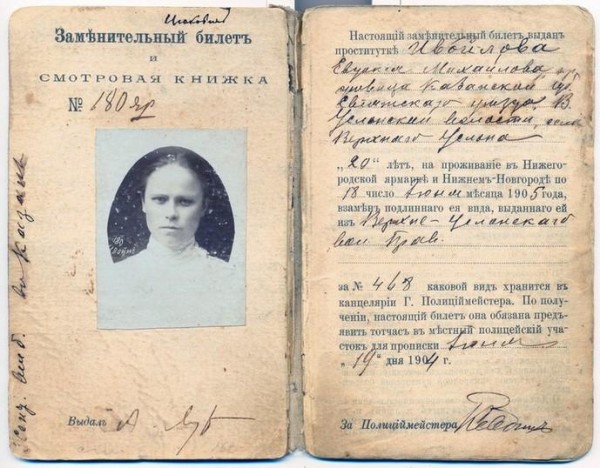 Замѣнительный билетъ
и
СМОТРОВАЯ КНИЖКА
№ 180 яр
Выдалъ
Настоящій замѣнительный билетъ выданъ
проституткѣ
Евдокія Михайлова
Казанской губ.
уѣзда, В.
Услонской волости, села
Верхняго Услона
„20" лѣтъ, на проживаніе въ Нижего-
родской ярмаркѣ и Нижнемъ-Новгородѣ по
18 число Іюня мѣсяца 1905 года,
взамѣнъ подлиннаго ея вида, выданнаго ей
изъ Верхне-Услонскаго
вол Прав.
за № 468 каковой видъ хранится въ
канцеляріи Г. Полиціймейстера. По полу-
ченіи, настоящій билетъ она обязана предъ-
явить тотчасъ въ мѣстный полицейскій уча-
стокъ для прописки Іюня
„19" дня 1904 г.
За Полиціймейстера